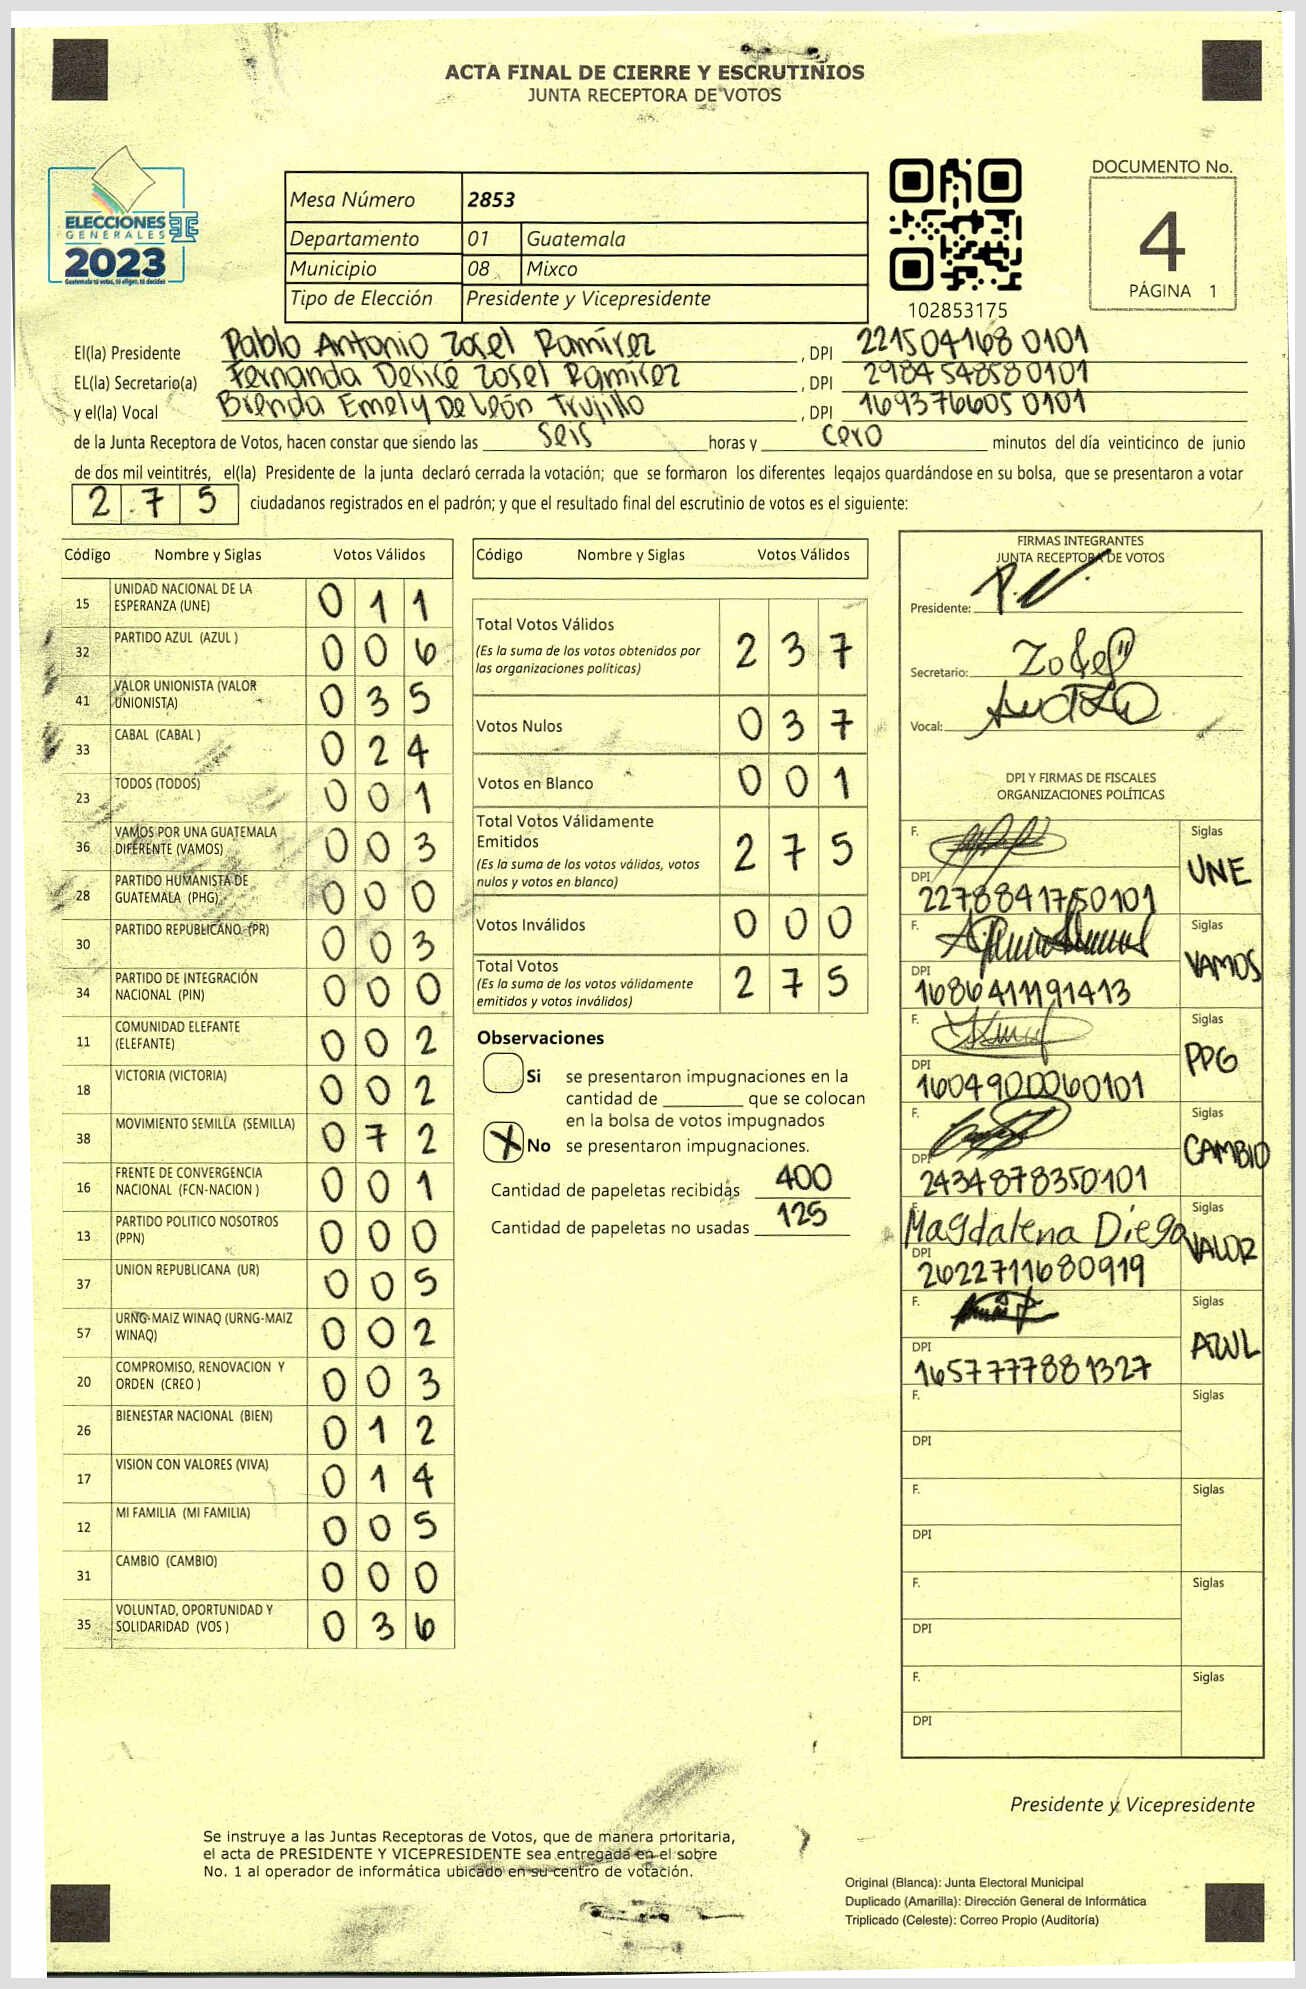 ACTA FINAL DE CIERRE Y ESCRUTINIOS
JUNTA RECEPTORA DE VOTOS
ELECCIONES
GENERALES
2023
Guatemala tú votas, tú eliges, tú decides
Mesa Número 2853
Departamento 01 Guatemala
Municipio 08 Mixco
Tipo de Elección Presidente y Vicepresidente
102853175
DOCUMENTO No.
4
PÁGINA 1
El(la) Presidente Pablo Antonio Zosel Ramírez, DPI 221504168 0101
EL(la) Secretario(a) Fernanda Desiré Zosel Ramirez, DPI 298454858 0101
y el(la) Vocal Brenda Emely De León Trujillo, DPI 169376605 0101
de la Junta Receptora de Votos, hacen constar que siendo las seis horas y cero minutos del día veinticinco de junio
de dos mil veintitrés, el(la) Presidente de la junta declaró cerrada la votación; que se formaron los diferentes legajos guardándose en su bolsa, que se presentaron a votar
2 7 5 ciudadanos registrados en el padrón; y que el resultado final del escrutinio de votos es el siguiente:
Código Nombre y Siglas Votos Válidos
15 UNIDAD NACIONAL DE LA ESPERANZA (UNE) 0 1 1
32 PARTIDO AZUL (AZUL ) 0 0 6
41 VALOR UNIONISTA (VALOR UNIONISTA) 0 3 5
33 CABAL (CABAL ) 0 2 4
23 TODOS (TODOS) 0 0 1
36 VAMOS POR UNA GUATEMALA DIFERENTE (VAMOS) 0 0 3
28 PARTIDO HUMANISTA DE GUATEMALA (PHG) 0 0 0
30 PARTIDO REPUBLICANO (PR) 0 0 3
34 PARTIDO DE INTEGRACIÓN NACIONAL (PIN) 0 0 0
11 COMUNIDAD ELEFANTE (ELEFANTE) 0 0 2
18 VICTORIA (VICTORIA) 0 0 2
38 MOVIMIENTO SEMILLA (SEMILLA) 0 7 2
16 FRENTE DE CONVERGENCIA NACIONAL (FCN-NACION ) 0 0 1
13 PARTIDO POLITICO NOSOTROS (PPN) 0 0 0
37 UNION REPUBLICANA (UR) 0 0 5
57 URNG-MAIZ WINAQ (URNG-MAIZ WINAQ) 0 0 2
20 COMPROMISO, RENOVACION Y ORDEN (CREO ) 0 0 3
26 BIENESTAR NACIONAL (BIEN) 0 1 2
17 VISION CON VALORES (VIVA) 0 1 4
12 MI FAMILIA (MI FAMILIA) 0 0 5
31 CAMBIO (CAMBIO) 0 0 0
35 VOLUNTAD, OPORTUNIDAD Y SOLIDARIDAD (VOS ) 0 3 6
Código Nombre y Siglas Votos Válidos
Total Votos Válidos 2 3 7
(Es la suma de los votos obtenidos por
las organizaciones políticas)
Votos Nulos 0 3 7
Votos en Blanco 0 0 1
Total Votos Válidamente
Emitidos 2 7 5
(Es la suma de los votos válidos, votos
nulos y votos en blanco)
Votos Inválidos 0 0 0
Total Votos 2 7 5
(Es la suma de los votos válidamente
emitidos y votos inválidos)
Observaciones
Si se presentaron impugnaciones en la
cantidad de ________ que se colocan
en la bolsa de votos impugnados
X No se presentaron impugnaciones.
Cantidad de papeletas recibidas 400
Cantidad de papeletas no usadas 125
FIRMAS INTEGRANTES
JUNTA RECEPTORA DE VOTOS
Presidente:
Secretario: Zosel
Vocal:
DPI Y FIRMAS DE FISCALES
ORGANIZACIONES POLÍTICAS
F. Siglas UNE
DPI 2278841750101
F. Siglas VAMOS
DPI 1686411191413
F. Siglas PPG
DPI 1604900060101
F. Siglas CAMBIO
DPI 2434878350101
F. Magdalena Diego Siglas VALOR
DPI 2622711680919
F. Siglas AZUL
DPI 1657777881327
F. Siglas
DPI
F. Siglas
DPI
F. Siglas
DPI
F. Siglas
DPI
Presidente y Vicepresidente
Se instruye a las Juntas Receptoras de Votos, que de manera prioritaria,
el acta de PRESIDENTE Y VICEPRESIDENTE sea entregada en el sobre
No. 1 al operador de informática ubicado en su centro de votación.
Original (Blanca): Junta Electoral Municipal
Duplicado (Amarilla): Dirección General de Informática
Triplicado (Celeste): Correo Propio (Auditoría)